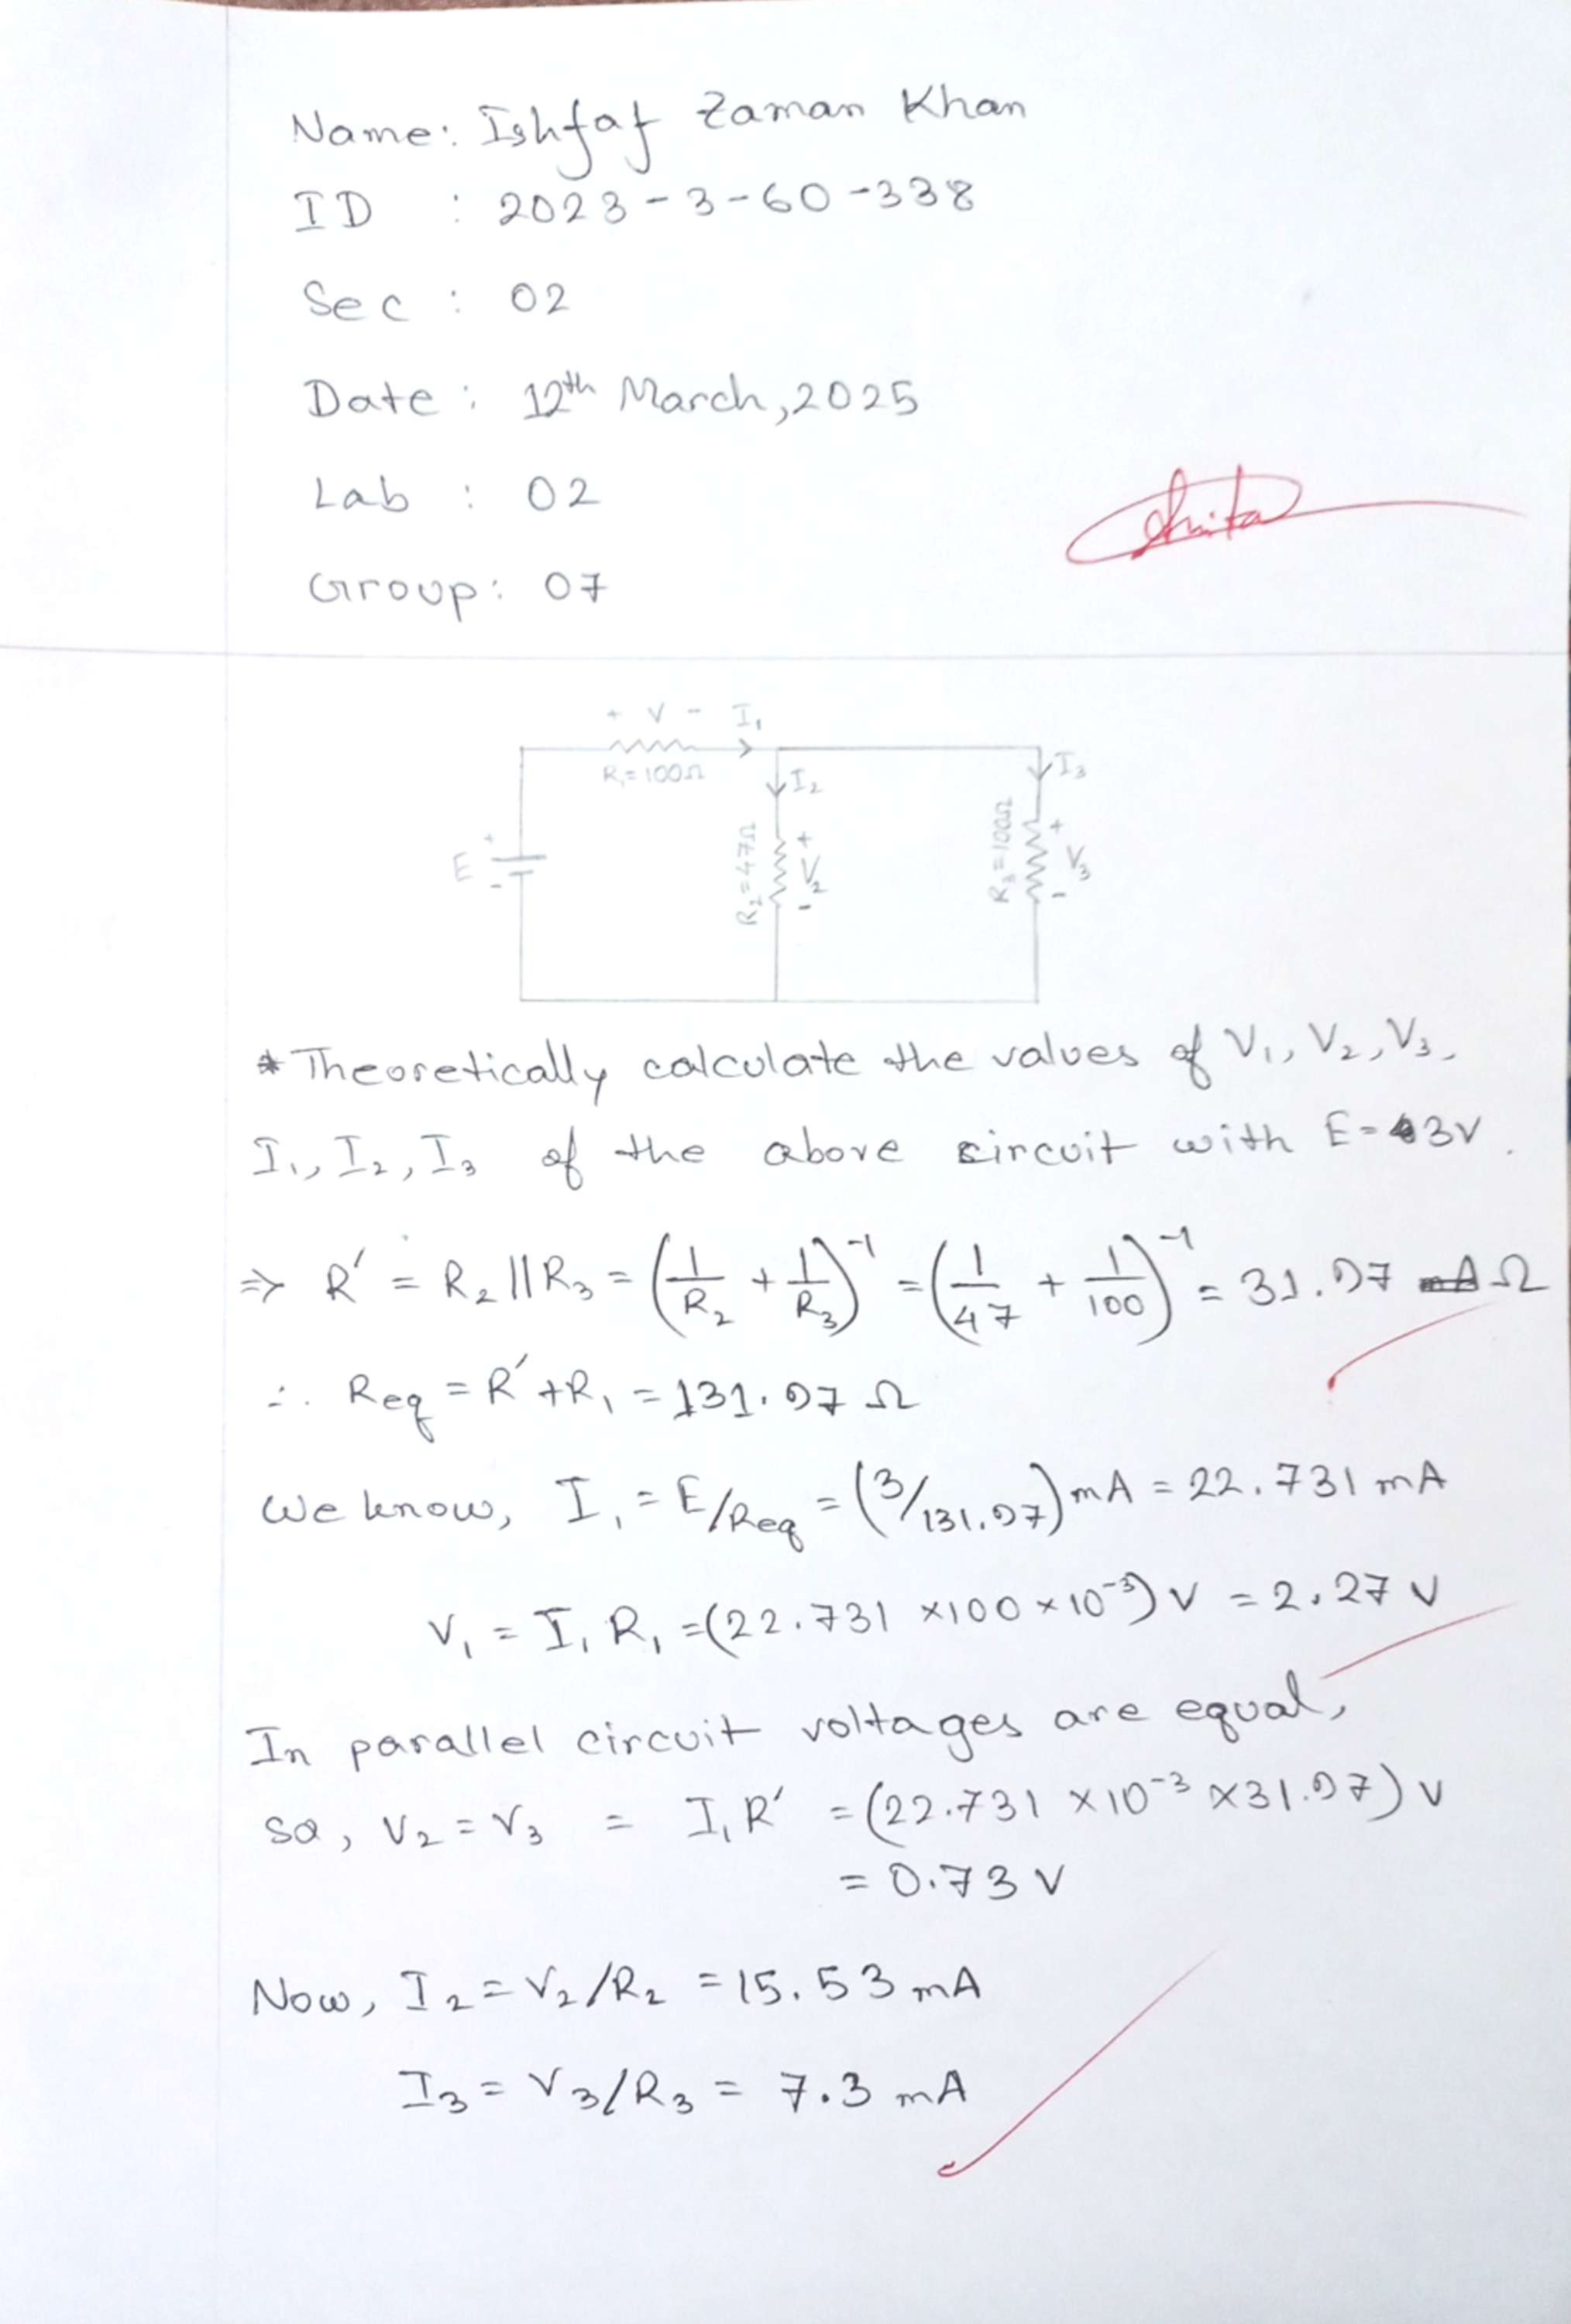 Name: Ishfaf Zaman Khan
ID : 2023-3-60-338
Sec : 02
Date : 12th March, 2025
Lab : 02
Group: 07
+ V - I₁
R₁=100Ω
I₂
I₃
E + -
R₂=47Ω
+ V₂ -
R₃=100Ω
+ V₃ -
* Theoretically calculate the values of V₁, V₂, V₃,
I₁, I₂, I₃ of the above circuit with E=3V.
⇒ R′ = R₂||R₃ = (1/R₂ + 1/R₃)⁻¹ = (1/47 + 1/100)⁻¹ = 31.97 Ω
∴ Req = R′+R₁ = 131.97 Ω
We know, I₁ = E/Req = (3/131.97) mA = 22.731 mA
V₁ = I₁ R₁ = (22.731 ×100 × 10⁻³) V = 2.27 V
In parallel circuit voltages are equal,
so, V₂ = V₃ = I₁R′ = (22.731 × 10⁻³ × 31.97) V
= 0.73 V
Now, I₂ = V₂/R₂ = 15.53 mA
I₃ = V₃/R₃ = 7.3 mA